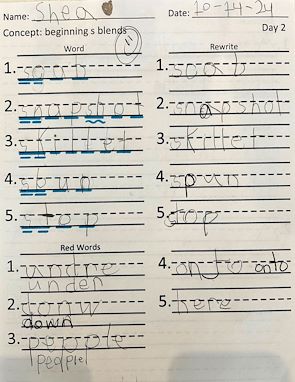 Name: Shea Date: 10-14-24
Concept: beginning s blends Day 2
Word Rewrite
1. soab 1. soab
2. snapshot 2. snapshot
3. skillet 3. skillet
4. sbun 4. spun
5. stop 5. stop
Red Words
1. undre 4. onto onto
under
2. donw 5. here
down
3. people
people